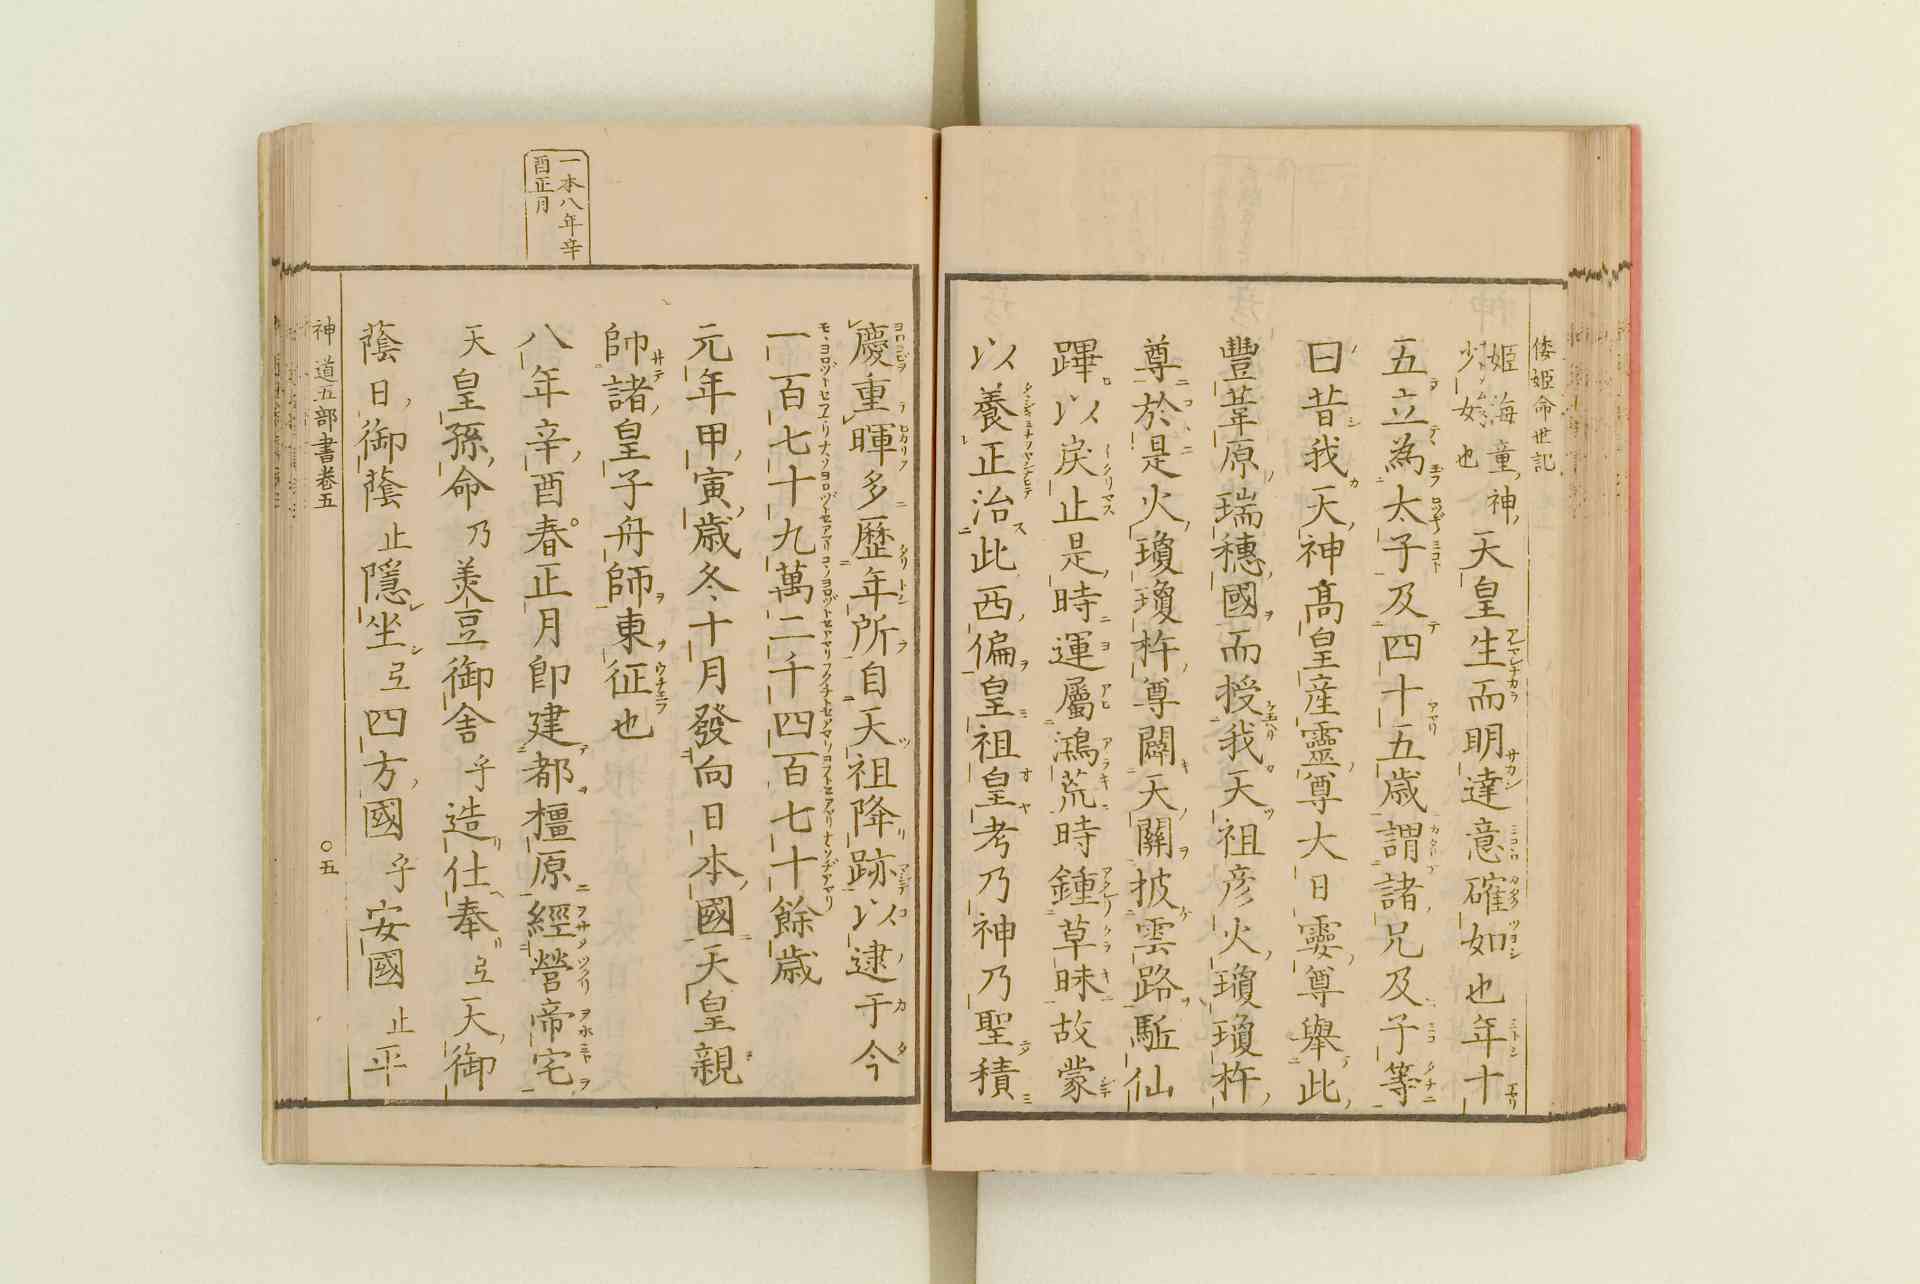 倭姫命世記
姫海童神
少女也
天皇生而明達意確如也年十
五立為太子及四十五歳謂諸兄及子等
曰昔我天神髙皇産靈尊大日孁尊舉此
豐葦原瑞穗國而授我天祖彦火瓊瓊杵
尊於是火瓊瓊杵尊闢天關披雲路駈仙
蹕以戻止是時運屬鴻荒時鍾草昧故蒙
以養正治此西偏皇祖皇考乃神乃聖積
慶重暉多歴年所自天祖降跡以逮于今
一百七十九萬二千四百七十餘歳
元年甲寅歳冬十月發向日本國天皇親
帥諸皇子舟師東征也
一本八年辛
酉正月
八年辛酉春正月即建都橿原經營帝宅
天皇孫命乃美豆御舎乎造仕奉弖天御
蔭日御蔭止隱坐弖四方國乎安國止平
神道五部書巻五
○五